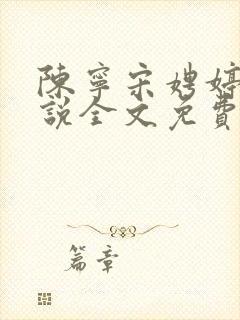 陳寧宋娉婷
說全文免費
篇章